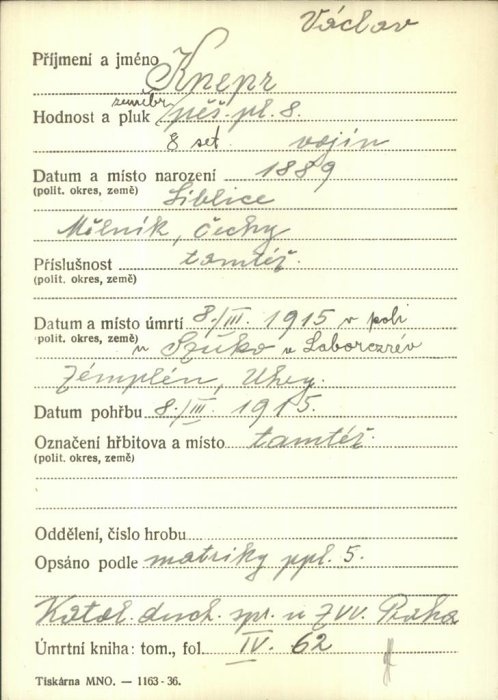 Václav
Příjmení a jméno Knepr
zeměbr.
Hodnost a pluk pěš. pl. 8.
8 set vojín
Datum a místo narození 1889
(polit. okres, země) Liblice
Mělník, Čechy
Příslušnost tamtéž.
(polit. okres, země)
Datum a místo úmrtí 8./III. 1915 v poli
(polit. okres, země) u Szuko u Laborczrév
Zemplén, Uhry.
Datum pohřbu 8./III. 1915.
Označení hřbitova a místo tamtéž.
(polit. okres, země)
Oddělení, číslo hrobu
Opsáno podle matriky ppl. 5.
Katol. duch. spr. u ZVV. Praha
Úmrtní kniha: tom., fol. IV. 62
Tiskárna MNO. — 1163-36.